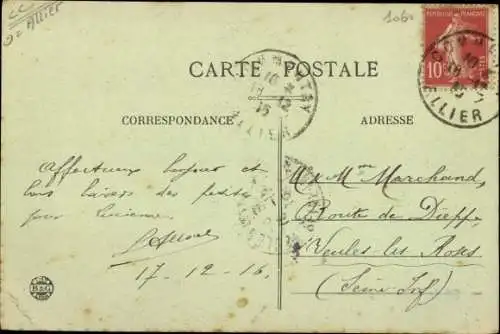 Allier
CARTE POSTALE
CORRESPONDANCE
ADRESSE
REPUBLIQUE FRANÇAISE
10
ALLIER
Affectueux bonjour et
bons baisers des petits
pour Lucienne
17-12-16
B&G
M & Mme Marchand
Route de Dieppe
Veules les Roses
(Seine Inf)